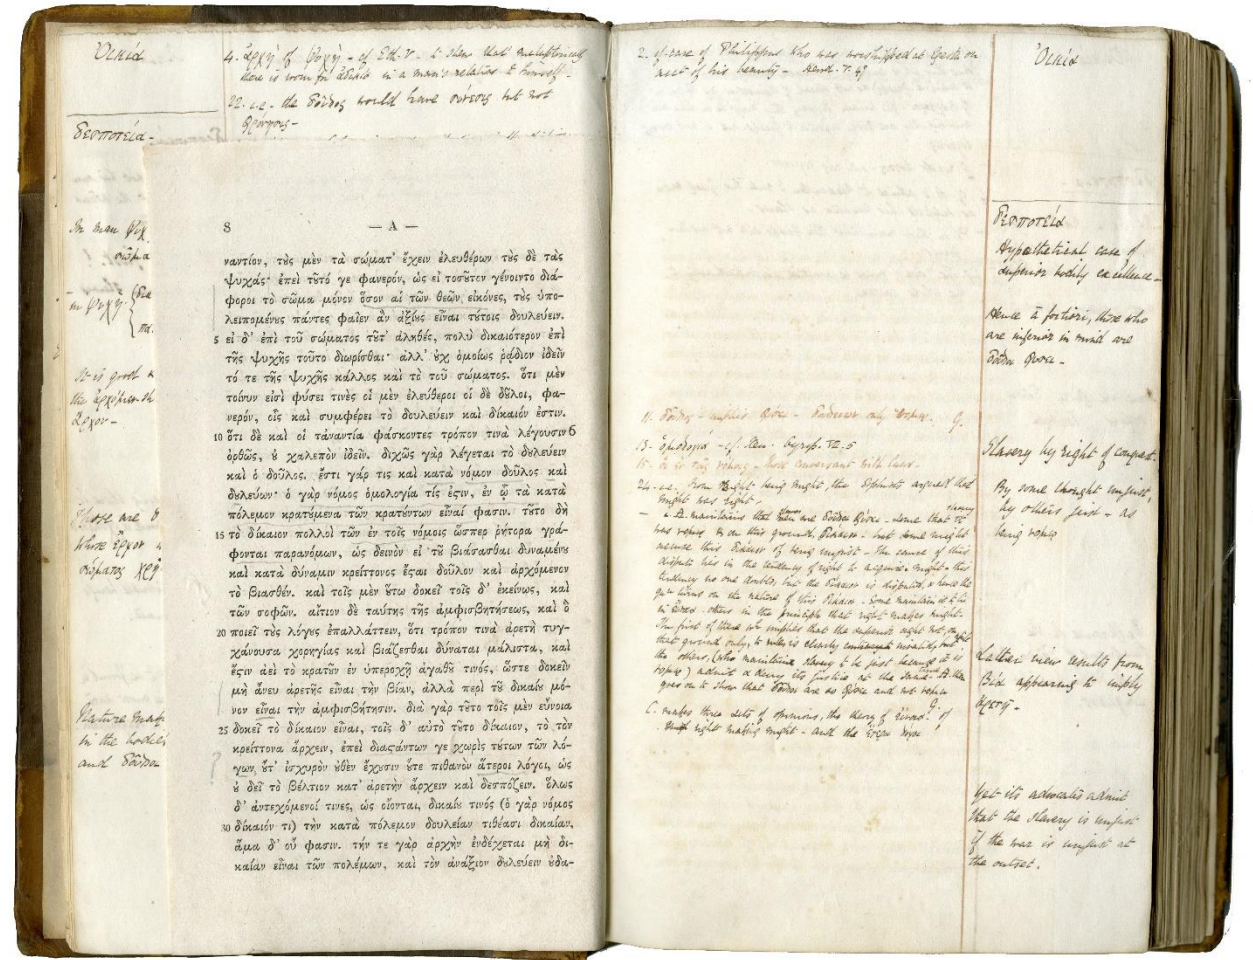 Οἰκία
4. ἀρχὴ of ψυχὴ - cf Eth. V. that metaphorically
there is room for in a man's relation to himself.
22. i.e. the δοῦλος would have σύνεσις but not
φρόνησις -
δεσποτεία -
In man ψυχ
σῶμα
in ψυχὴ
It is good
the
ἄρχον -
Those are
whose ἔργον
σώματος
Nature may
in the bodies
and δοῦλοι
8 — A —
ναντίον, τὺς μὲν τὰ σώματ' ἔχειν ἐλευθέρων τὺς δὲ τὰς
ψυχάς· ἐπεὶ τῦτό γε φανερόν, ὡς εἰ τοσῦτον γένοιντο διά-
φοροι τὸ σῶμα μόνον ὅσον αἱ τῶν θεῶν εἰκόνες, τὺς ὑπο-
λειπομένυς πάντες φαῖεν ἂν ἀξίυς εἶναι τύτοις δουλεύειν.
5 εἰ δ' ἐπὶ τοῦ σώματος τῦτ' ἀληθές, πολὺ δικαιότερον ἐπὶ
τῆς ψυχῆς τοῦτο διωρίσθαι· ἀλλ' ὐχ ὁμοίως ῥᾴδιον ἰδεῖν
τό τε τῆς ψυχῆς κάλλος καὶ τὸ τοῦ σώματος. ὅτι μὲν
τοίνυν εἰσὶ φύσει τινὲς οἱ μὲν ἐλεύθεροι οἱ δὲ δῦλοι, φα-
νερόν, οἷς καὶ συμφέρει τὸ δουλεύειν καὶ δίκαιόν ἐστιν.
10 ὅτι δὲ καὶ οἱ τἀναντία φάσκοντες τρόπον τινὰ λέγουσιν 6
ὀρθῶς, ὐ χαλεπὸν ἰδεῖν. διχῶς γὰρ λέγεται τὸ δυλεύειν
καὶ ὁ δοῦλος. ἔστι γάρ τις καὶ κατὰ νόμον δοῦλος καὶ
δυλεύων· ὁ γὰρ νόμος ὁμολογία τίς ἐστιν, ἐν ᾧ τὰ κατὰ
πόλεμον κρατύμενα τῶν κρατύντων εἶναί φασιν. τῦτο δὴ
15 τὸ δίκαιον πολλοὶ τῶν ἐν τοῖς νόμοις ὥσπερ ῥήτορα γρά-
φονται παρανόμων, ὡς δεινὸν εἰ τῦ βιάσασθαι δυναμένυ
καὶ κατὰ δύναμιν κρείττονος ἔσται δοῦλον καὶ ἀρχόμενον
τὸ βιασθέν. καὶ τοῖς μὲν ὕτω δοκεῖ τοῖς δ' ἐκείνως, καὶ
τῶν σοφῶν. αἴτιον δὲ ταύτης τῆς ἀμφισβητήσεως, καὶ ὃ
20 ποιεῖ τὺς λόγυς ἐπαλλάττειν, ὅτι τρόπον τινὰ ἀρετὴ τυγ-
χάνουσα χορηγίας καὶ βιάζεσθαι δύναται μάλιστα, καὶ
ἔστιν ἀεὶ τὸ κρατῦν ἐν ὑπεροχῇ ἀγαθῦ τινός, ὥστε δοκεῖν
μὴ ἄνευ ἀρετῆς εἶναι τὴν βίαν, ἀλλὰ περὶ τῦ δικαίυ μό-
νον εἶναι τὴν ἀμφισβήτησιν. διὰ γὰρ τῦτο τοῖς μὲν εὔνοια
25 δοκεῖ τὸ δίκαιον εἶναι, τοῖς δ' αὐτὸ τῦτο δίκαιον, τὸ τὸν
κρείττονα ἄρχειν, ἐπεὶ διαστάντων γε χωρὶς τύτων τῶν λό-
γων ὔτ' ἰσχυρὸν ὐθὲν ἔχυσιν ὔτε πιθανὸν ἅτεροι λόγοι, ὡς
ὐ δεῖ τὸ βέλτιον κατ' ἀρετὴν ἄρχειν καὶ δεσπόζειν. ὅλως
δ' ἀντεχόμενοί τινες, ὡς οἴονται, δικαίυ τινός (ὁ γὰρ νόμος
30 δίκαιόν τι) τὴν κατὰ πόλεμον δουλείαν τιθέασι δικαίαν,
ἅμα δ' οὔ φασιν. τήν τε γὰρ ἀρχὴν ἐνδέχεται μὴ δι-
καίαν εἶναι τῶν πολέμων, καὶ τὸν ἀνάξιον δυλεύειν ὐδα-
2. cf. case of Philippus who was worshipped at Egesta on
acct of his beauty - Herod. V. 47
11. δοῦλος - implies φύσει - only G.
13. ὁμολογία - cf. Xen. Cyrop. VII. 5
15. οἱ ἐν τοῖς νόμοις - those conversant with laws.
24. i.e. from right being might, the Sophists argued that
might was right.
- A. maintains that some are δοῦλοι φύσει - some that slavery
was νόμῳ & on this ground δίκαιον - but some might
accuse this δίκαιον of being unjust - The cause of this
dispute lies in the tendency of right to acquire might - this
tendency no one doubts, but the δίκαιον is disputed, & hence the
turns on the nature of this δίκαιον. Some maintain it to be
in εὔνοια. others in the principle that right makes might.
The first of these implies that the superior ought not, on
that ground only, to rule is clearly
the others, (who maintain slavery to be just because it is
νόμῳ) admit & deny its justice at the same - A. then
goes on to show that δοῦλοι are so φύσει and not νόμῳ
C. makes three sets of opinions, the theory of εὔνοια, of
right making might - and the
Οἰκία
δεσποτεία
Hypothetical case of
superior bodily excellence -
Hence à fortiori, those who
are inferior in mind are
δοῦλοι φύσει -
Slavery by right of conquest.
By some thought unjust,
by others just - as
being νόμῳ
Latter view results from
βία appearing to imply
ἀρετή -
Yet its advocates admit
that the slavery is unjust
if the war is unjust at
the outset.